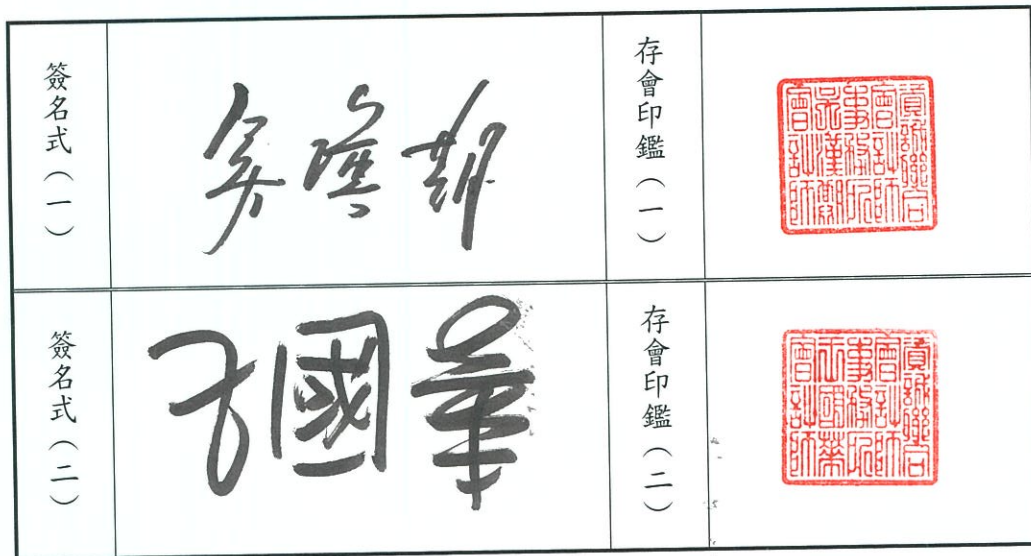 簽名式(一)
吳漢期
存會印鑑(一)
資誠聯合
會計師
事務所
吳漢期
會計師
簽名式(二)
王國華
存會印鑑(二)
資誠聯合
會計師
事務所
王國華
會計師